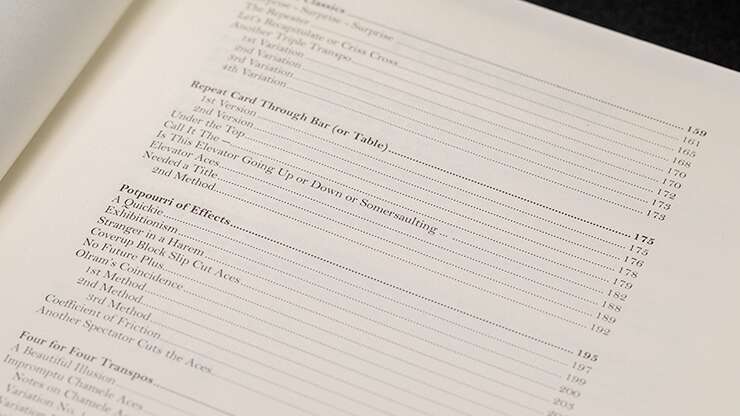 Classics 159
prise - Surprise - Surprise 161
The Repeater 165
Let's Recapitulate or Criss Cross 168
Another Triple Transpo 170
1st Variation 170
2nd Variation 172
3rd Variation 173
4th Variation 173
Repeat Card Through Bar (or Table) 175
1st Version 175
2nd Version 176
Under the Top 178
Call It The — 179
Is This Elevator Going Up or Down or Somersaulting 182
Elevator Aces 188
Needed a Title 189
2nd Method 192
Potpourri of Effects 195
A Quickie 197
Exhibitionism 199
Stranger in a Harem 200
Coverup Block Slip Cut Aces 203
No Future Plus
Olram's Coincidence
1st Method
2nd Method
3rd Method
Coefficient of Friction
Another Spectator Cuts the Aces
Four for Four Transpos
A Beautiful Illusion
Impromptu Chamele Aces
Notes on Chamele Aces
Variation No. 1
Variation